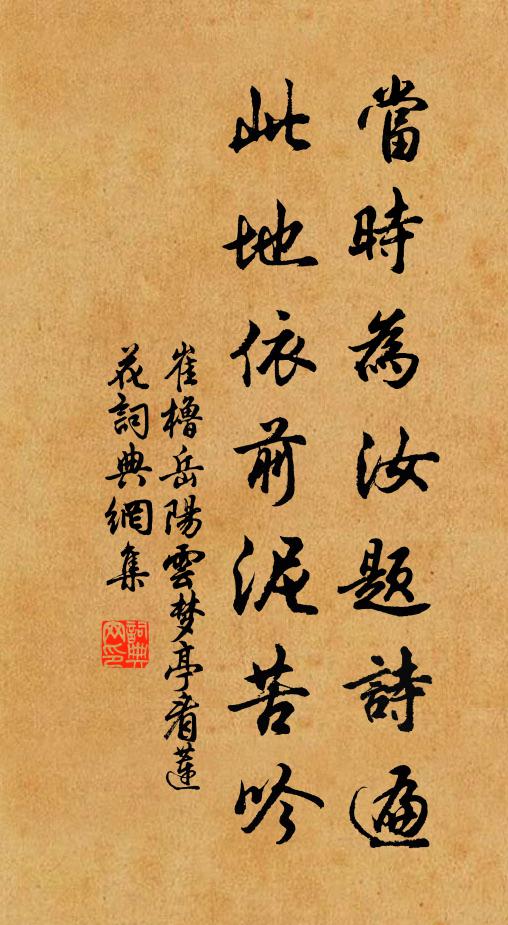 當時為汝題詩遍
此地依前泥苦吟
崔櫓岳陽雲梦亭看蓮
花詞典網集
詞典
网印